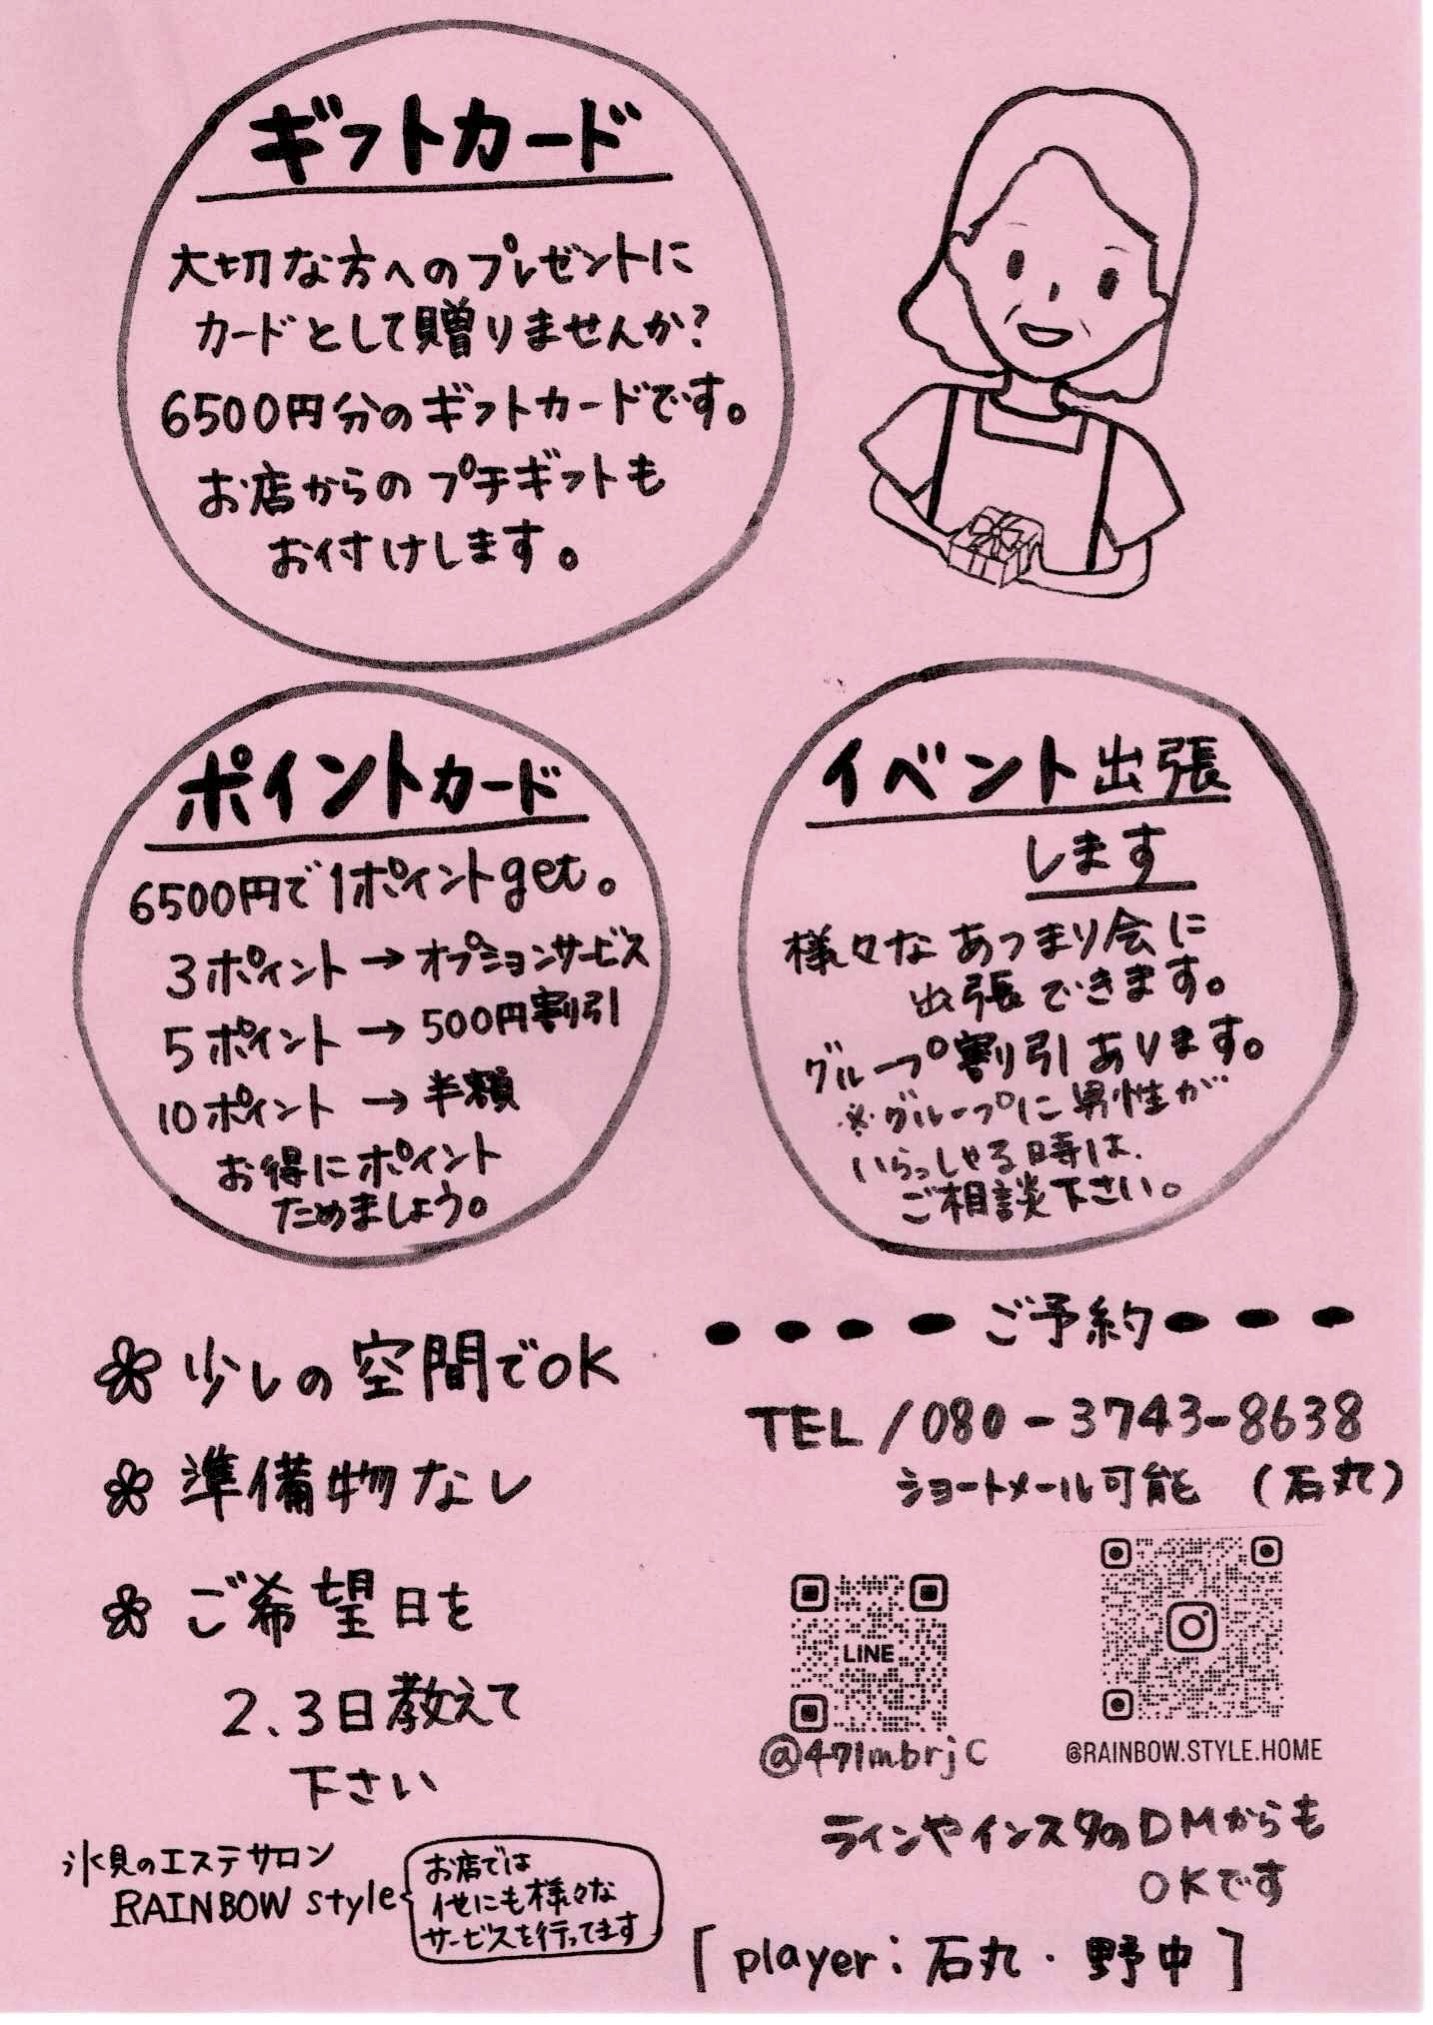 ギフトカード
大切な方へのプレゼントに
カードとして贈りませんか?
6500円分のギフトカードです。
お店からのプチギフトも
お付けします。
ポイントカード
6500円で1ポイントget。
3ポイント→オプションサービス
5ポイント→500円割引
10ポイント→半額
お得にポイント
ためましょう。
イベント出張
します
様々なあつまり会に
出張できます。
グループ割引あります。
※グループに男性が
いらっしゃる時は、
ご相談下さい。
少しの空間でOK
準備物なし
ご希望日を
2、3日教えて
下さい
氷見のエステサロン
RAINBOW style
お店では
他にも様々な
サービスを行ってます
ご予約
TEL/080-3743-8638
ショートメール可能 (石丸)
LINE
@471mbrjc
@RAINBOW.STYLE.HOME
ラインやインスタのDMからも
OKです
[player:石丸・野中]